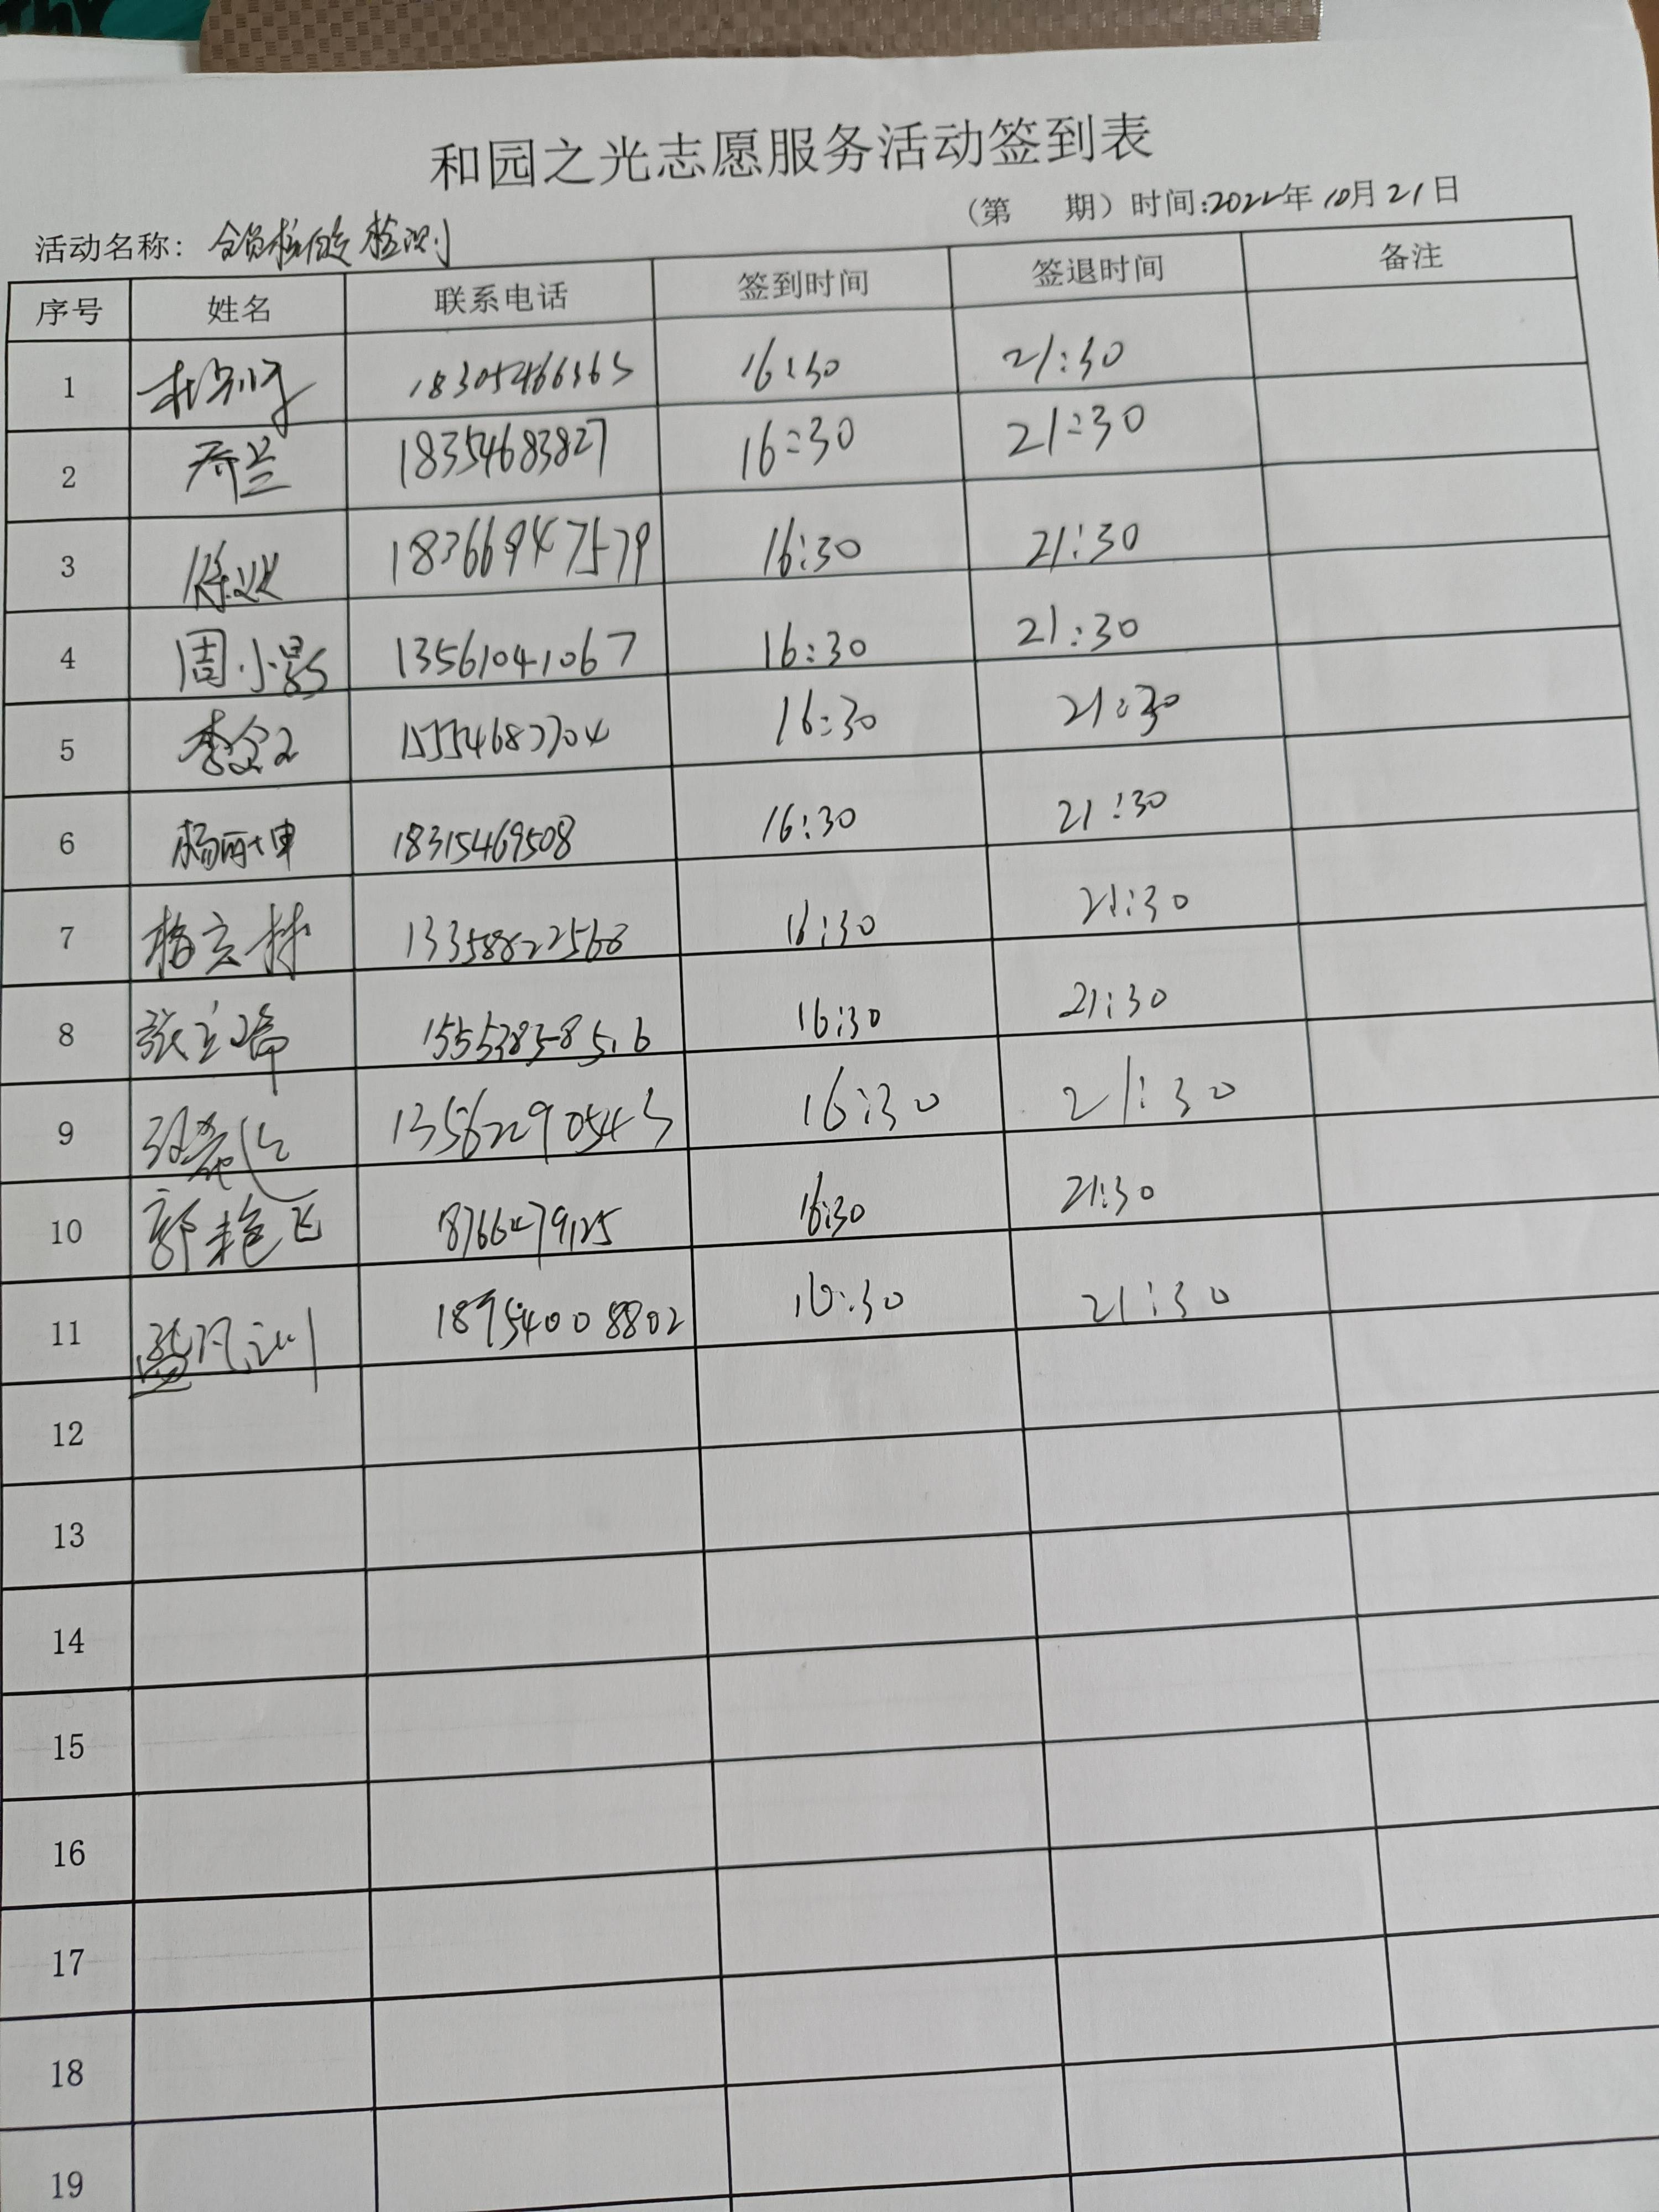 和园之光志愿服务活动签到表
(第 期)时间:2022年10月21日
活动名称: 全员核酸检测
序号 姓名 联系电话 签到时间 签退时间 备注
1 16:30 21:30
2 乔兰 18354683827 16:30 21:30
3 18366947579 16:30 21:30
4 周小影 13561041067 16:30 21:30
5 16:30 21:30
6 杨丽坤 18315469508 16:30 21:30
7 杨玄林 16:30 21:30
8 张立瑞 16:30 21:30
9 16:30 21:30
10 郭艳飞 16:30 21:30
11 18954008802 16:30 21:30
12
13
14
15
16
17
18
19